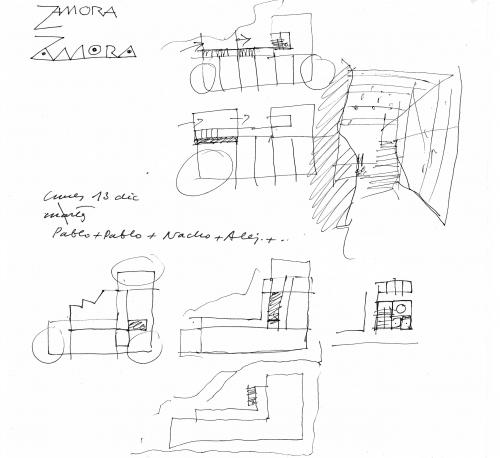 ZAMORA
ZAMORA
lunes 13 dic
martes
Pablo + Pablo + Nacho + Alej. + ..